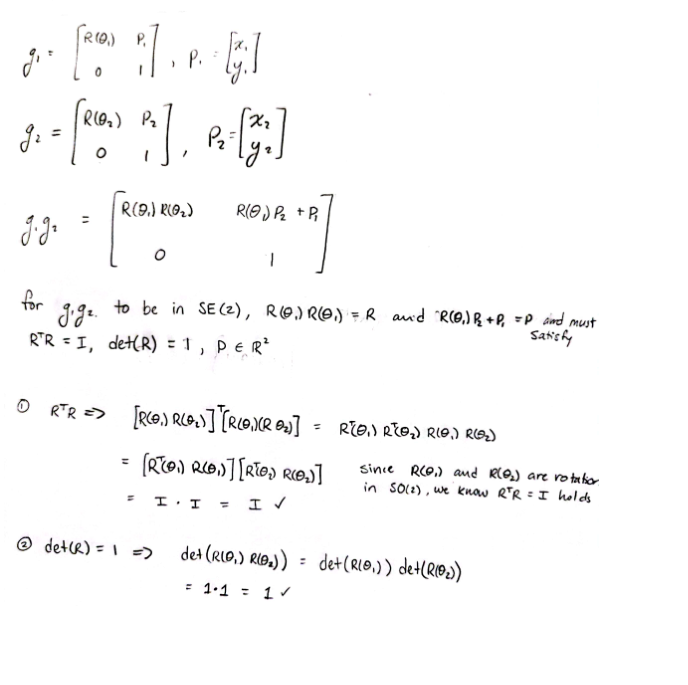 g₁ = [R(θ₁) P₁; 0 1], P₁ = [x₁; y₁]
g₂ = [R(θ₂) P₂; 0 1], P₂ = [x₂; y₂]
g₁g₂ = [R(θ₁) R(θ₂) R(θ₁) P₂ + P₁; 0 1]
for g₁g₂ to be in SE(2), R(θ₁) R(θ₁) = R and R(θ₁) P₂ + P₁ = P and must satisfy
RᵀR = I, det(R) = 1, P ∈ ℝ²
① RᵀR => [R(θ₁) R(θ₂)]ᵀ[R(θ₁)(R θ₂)] = Rᵀ(θ₁) Rᵀ(θ₂) R(θ₁) R(θ₂)
= [Rᵀ(θ₁) R(θ₁)][Rᵀ(θ₂) R(θ₂)] since R(θ₁) and R(θ₂) are rotation
= I · I = I ✓ in SO(2), we know RᵀR = I holds
② det(R) = 1 => det(R(θ₁) R(θ₂)) = det(R(θ₁)) det(R(θ₂))
= 1·1 = 1 ✓